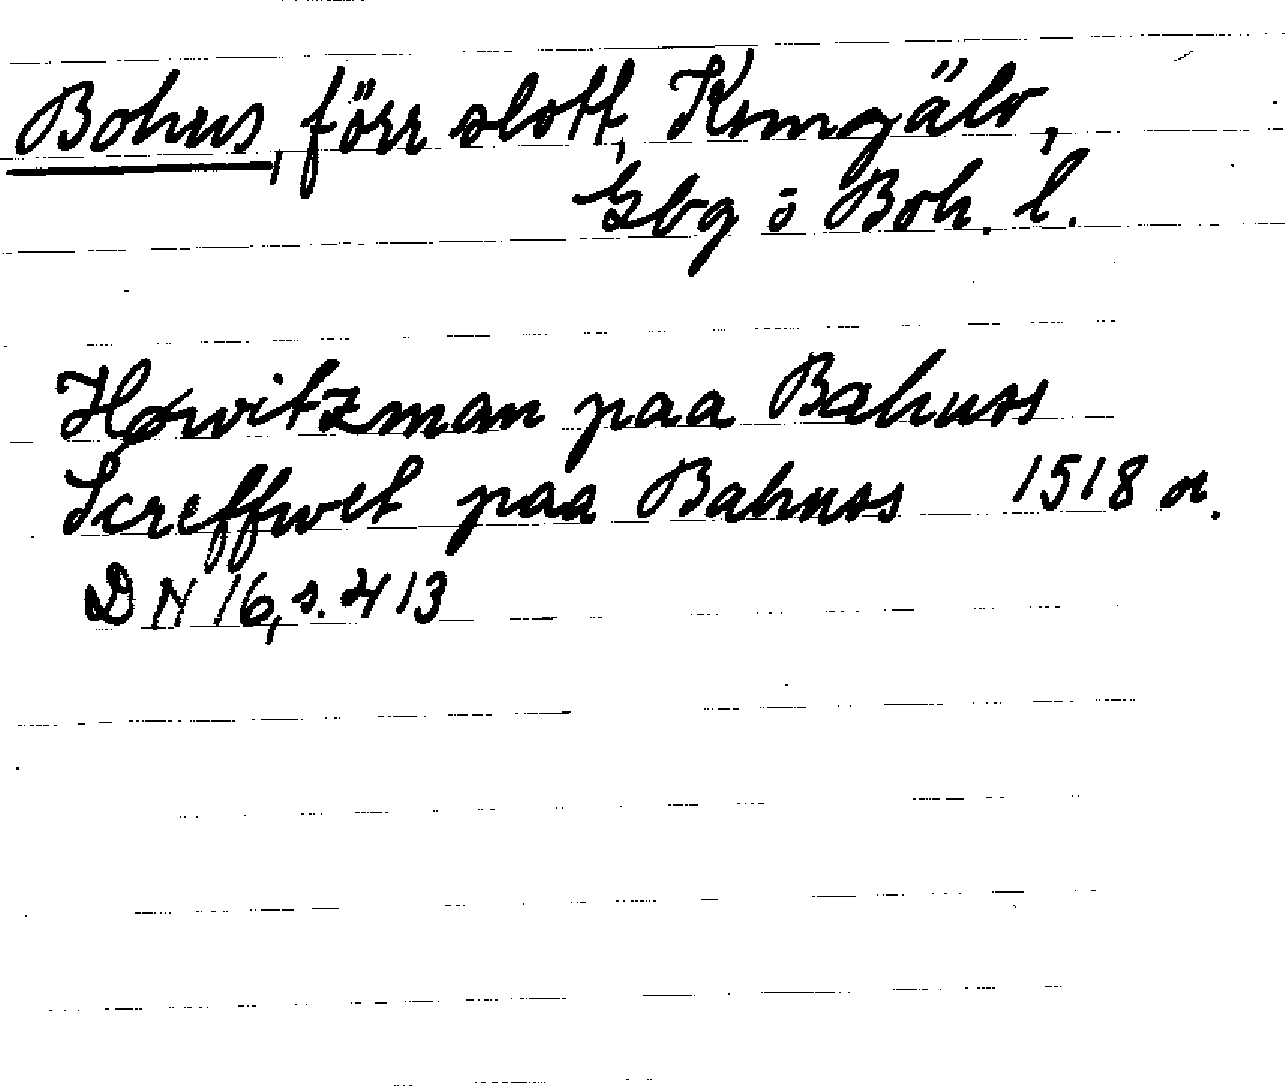 Bohus, förr slott, Kungälv,
Gbg o Boh. l.
Høwitzman paa Bahuss
Screffwet paa Bahuss 1518 or.
DN 16, s. 413